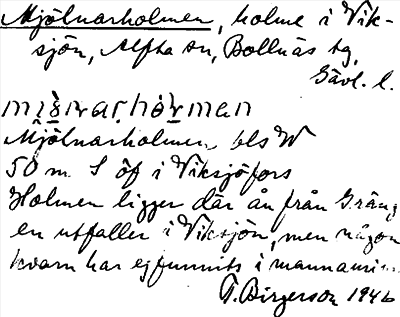 Mjölnarholmen, holme i Vik-
sjön, Alfta sn, Bollnäs tg,
Gävl. l.
Mjölnarholmen bls W
50 m S öf i Viksjöfors
Holmen ligger där ån från Gräng
en utfaller i Viksjön, men någon
kvarn har ej funnits i mannamin
T. Birgerson 1946